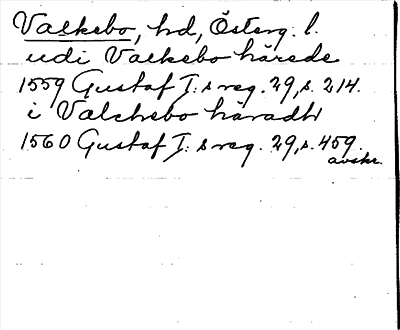 Valkebo, hd, Österg. l.
udi Valkebo härede
1559 Gustaf I:s reg. 29, s. 214.
i Valchebo häradh
1560 Gustaf I:s reg. 29, s. 459.
avskr.